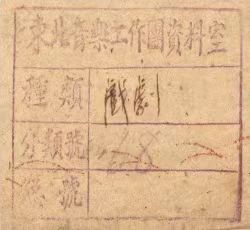 東北音樂工作團資料室
種類 戲劇
分類號 28
總號